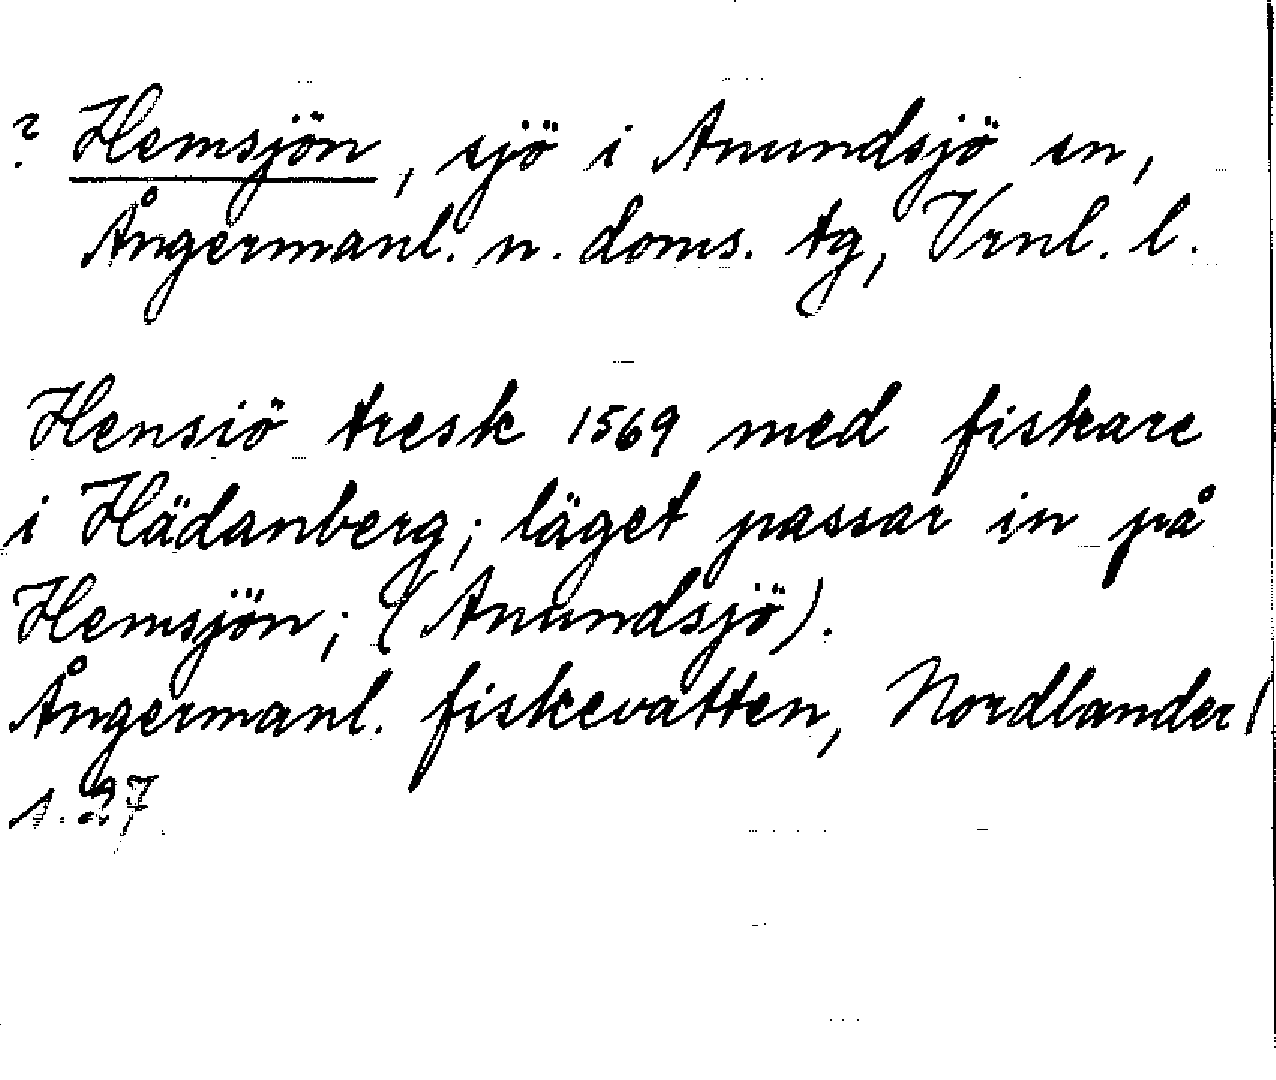 ? Hemsjön, sjö i Anundsjö sn,
Ångermanl. n. doms. tg, Vrnl. l.
Hensiö tresk 1569 med fiskare
i Hädanberg; läget passar in på
Hemsjön; (Anundsjö).
Ångermanl. fiskevatten, Nordlander
s. 27